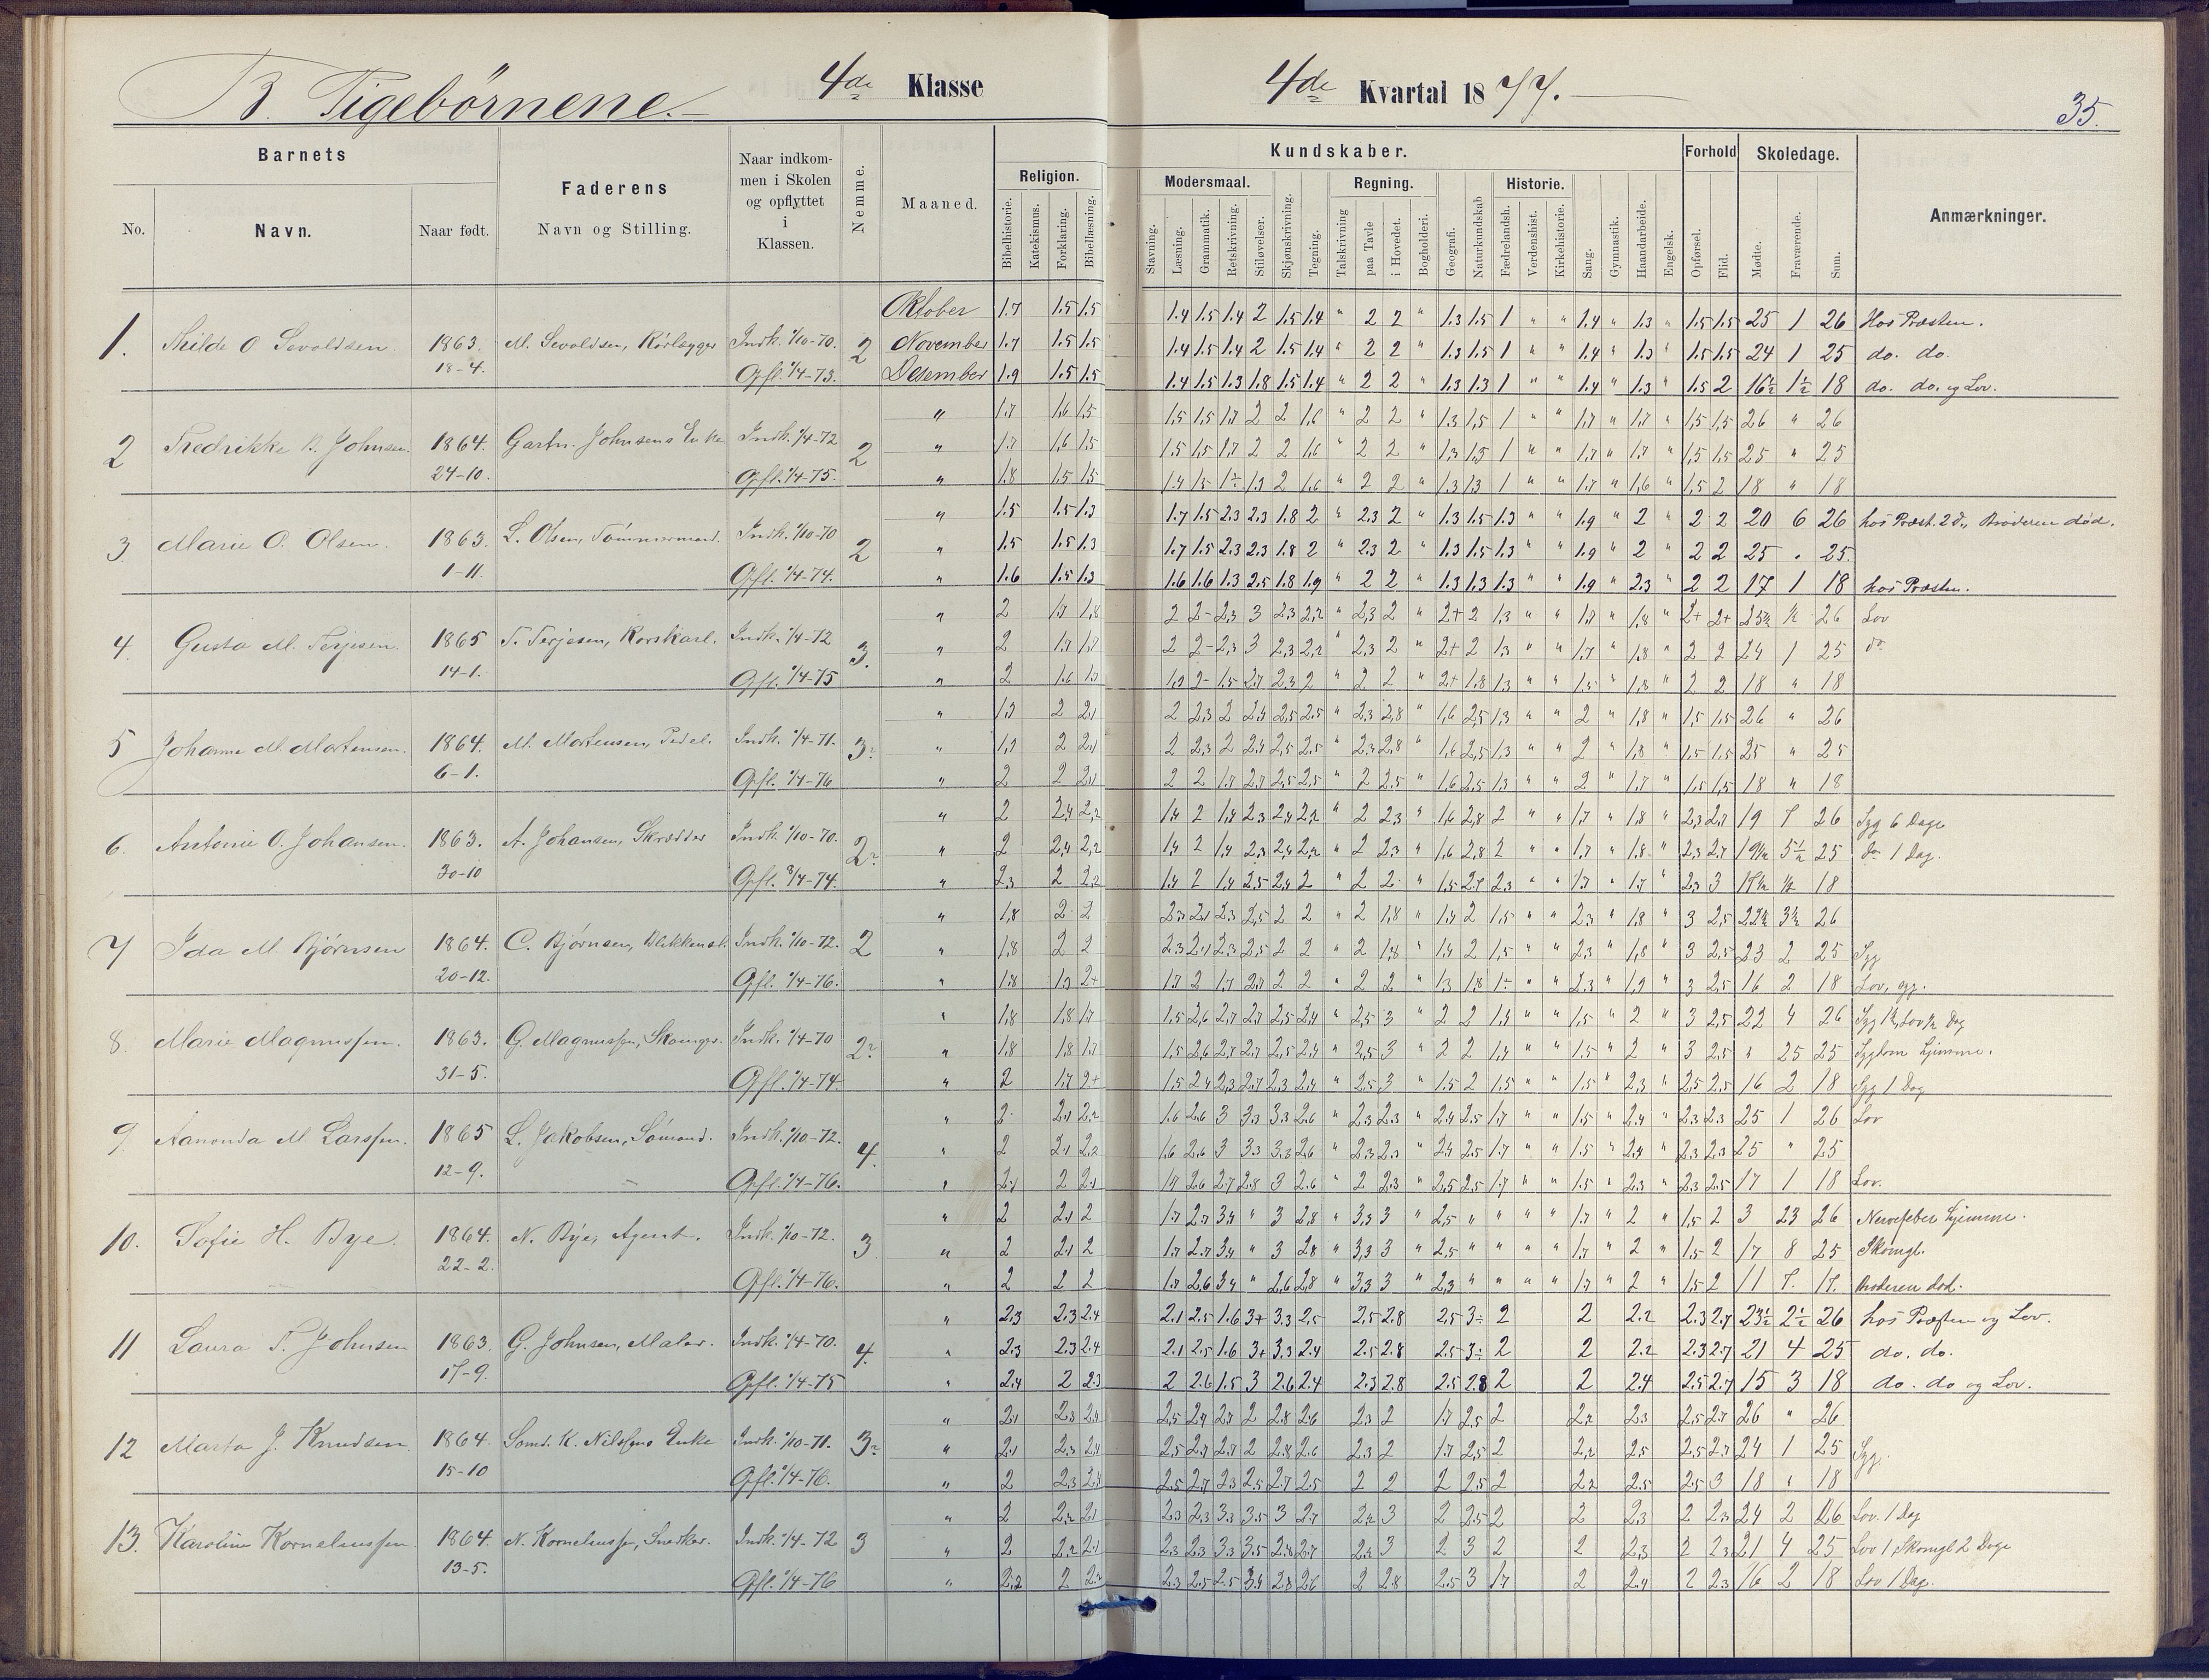 B. Tigebørnene. 4de Klasse 4de Kvartal 1877. 35.
Barnets Faderens Naar indkommen i Skolen og opflyttet i Klassen. Nemme. Maaned. Kundskaber. Forhold Skoledage. Anmærkninger.
Religion. Modersmaal. Regning. Historie.
No. Navn. Naar født. Navn og Stilling. Bibelhistorie. Katekismus. Forklaring. Bibellæsning. Stavning. Læsning. Grammatik. Retskrivning. Stiløvelser. Skjønskrivning. Tegning. Talskrivning paa Tavle i Hovedet. Bogholderi. Geografi. Naturkundskab Fædrelandsh. Verdenshist. Kirkehistorie. Sang. Gymnastik. Haandarbeide. Engelsk. Opførsel. Flid. Mødte. Fraværende. Sum.
Oktober 1.7 1.5 1.5 1.4 1.5 1.4 2 1.5 1.4 " 2 2 " 1.3 1.5 1 " " 1.4 " 1.3 " 1.5 1.5 25 1 26 Hos Præsten.
1. Thilde O Sevaldsen 1863. M. Sevaldsen, Rørlægger Indk. 1/10-70. 2 November 1.7 1.5 1.5 1.4 1.5 1.4 2 1.5 1.4 " 2 2 " 1.3 1.5 1 " " 1.4 " 1.3 " 1.5 1.5 24 1 25 do. do.
18-4. Opfl. 1/4-73. Desember 1.9 1.5 1.5 1.4 1.5 1.3 1.8 1.5 1.4 " 2 2 " 1.3 1.3 1 " " 1.4 " 1.3 " 1.5 2 16½ 1½ 18 do. do. og Lov.
" 1.7 1.6 1.5 1.5 1.5 1.7 2 2 1.6 " 2 2 " 1.3 1.5 1 " " 1.7 " 1.7 " 1.5 1.5 26 " 26
2 Fredrikke B. Johnsen. 1864. Gartn. Johnsens Enke Indk. 1/4-72 2 " 1.7 1.6 1.5 1.5 1.5 1.7 2 2 1.6 " 2 2 " 1.3 1.5 1 " " 1.7 " 1.7 " 1.5 1.5 25 " 25
24-10. Opfl. 1/4-75. " 1.8 1.5 1.5 2 1.6 " 2 2 " 1.3 1.3 1 " " 1.7 " 1.6 " 1.5 2 18 " 18
" 1.5 1.5 1.3 1.7 1.5 2.3 2.3 1.8 2 " 2.3 2 " 1.3 1.5 1.3 " " 1.9 " 2 " 2 2 20 6 26 hos Præst. 2 d., Broderen død.
3 Marie O. Olsen. 1863. L. Olsen, Tømmermand. Indk. 1/10-70 2 " 1.5 1.5 1.3 1.7 1.5 2.3 2.3 1.8 2 " 2.3 2 " 1.3 1.5 1.3 " " 1.9 " 2 " 2 2 25 " 25.
1-11. Opfl. 1/4-74. " 1.6 1.5 1.3 1.6 1.6 1.3 2.5 1.8 1.9 " 2 2 " 1.3 1.3 1.3 " " 1.9 " 2.3 " 2 2 17 1 18 hos Præsten.
" 2 1.7 1.8 2 2- 2.3 3 2.3 2.2 " 2.3 2 " 2+ 2 1.3 " " 1.7 " 1.8 " 2+ 2+ 25½ ½ 26 Lov
4. Gusta M. Terjesen. 1865 T. Terjesen, Korskarl. Indk. 1/4-72 3. " 2 1.7 1.7 2 2- 2.3 3 2.3 2.2 " 2.3 2 " 2+ 2 1.3 " " 1.7 " 1.8 " 2 2 24 1 25 do
14-1. Opfl. 1/4-75 " 2 1.6 1.7 1.9 2- 1.5 2.7 2.3 2 " 2 2 " 2+ 1.8 1.3 " " 1.5 " 1.8 " 2 2 18 " 18
" 1.9 2 2.1 2 2.3 2 2.4 2.5 2.5 " 2.3 2.8 " 1.6 2.5 1.3 " " 2 " 1.8 " 1.5 1.5 26 " 26
5 Johanne M. Mortensen. 1864. M. Mortensen, Pedel. Indk. 1/4-71. 3. " 1.9 2 2.1 2 2.3 2 2.4 2.5 2.5 " 2.3 2.8 " 1.6 2.5 1.3 " " 2 " 1.8 " 1.5 1.5 25 " 25
6-1. Opfl. 1/4-76 " 2 2 2.1 2 2 1.7 2.7 2.5 2.5 " 2 2.5 " 1.6 2.5 1.3 " " 2 " 1.7 " 1.5 1.5 18 " 18
" 2 2.4 2.2 1.4 2 1.4 2.3 2.4 2.2 " 2 2.3 " 1.6 2.8 2 " " 1.7 " 1.8 " 2.3 2.7 19 7 26 Syg 6 Dage
6. Antonie O. Johansen. 1863. A. Johansen, Skrædder Indk. 1/10-70. 2. " 2 2.4 2.2 1.4 2 1.4 2.3 2.4 2.2 " 2 2.3 " 1.6 2.8 2 " " 1.7 " 1.8 " 2.3 2.7 19½ 5½ 25 do 1 Dag.
30-10 Opfl. 1/4-74. " 2.3 2 2.2 1.4 2 1.4 2.5 2.4 2 " 2 2 " 1.5 2.7 2.3 " " 1.7 " 1.7 " 2.3 3 17½ ½ 18
" 1.8 2 2 2.3 2.1 2.3 2.5 2 2 " 2 1.8 " 1.4 2 1.5 " " 2.3 " 1.8 " 3 2.5 22½ 3½ 26
7 Ida M. Bjørnsen 1864. C. Bjørnsen, Blikkensl. Indk. 1/10-72. 2 " 1.8 2 2 2.3 2.1 2.3 2.5 2 2 " 2 1.8 " 1.4 2 1.5 " " 2.3 " 1.8 " 3 2.5 23 2 25 Syg
20-12. Opfl. 1/4-76. " 1.8 1.9 2+ 1.7 2 1.7 2.7 2 2 " 2 2 " 1.3 1.8 1- " " 2.3 " 1.9 " 3 2.5 16 2 18 Lov, syg.
" 1.8 1.8 1.7 1.5 2.6 2.7 2.7 2.5 2.4 " 2.5 3 " 2 2 1.4 " " 1.5 " 2 " 3 2.5 22 4 26
8. Marie Magnussen. 1863. G. Magnussen, Skomager. Indk. 1/4-70 2. " 1.8 1.8 1.7 1.5 2.6 2.7 2.7 2.5 2.4 " 2.5 3 " 2 2 1.4 " " 1.5 " 2 " 3 2.5 " 25 25 Sygdom hjemme.
31-5. Opfl. 1/4-74. " 2 1.7 2+ 1.5 2.4 2.3 2.7 2.3 2.4 " 2.5 3 " 1.5 2 1.5 " " 1.5 " 2.3 " 2.5 2.5 16 2 18 Syg 1 Dag
" 2 2.1 2.2 1.6 2.6 3 3.3 3.3 2.6 " 2.3 2.3 " 2.4 2.5 1.7 " " 1.5 " 2.4 " 2.3 2.3 25 1 26 Lov
9. Aanonda M Larssen. 1865 L. Jakobsen, Sømand. Indk. 1/10-72. 4. " 2 2.1 2.2 1.6 2.6 3 3.3 3.3 2.6 " 2.3 2.3 " 2.4 2.5 1.7 " " 1.5 " 2.4 " 2.3 2.3 25 " 25
12-9. Opfl. 1/4-76. " 2.1 2 2.1 1.4 2.6 2.7 2.8 3 2.6 " 2 2.3 " 2.5 2.5 1.7 " " 1.5 " 2.3 " 2.3 2.5 17 1 18 Lov.
" 2 2.1 2 1.7 2.7 3.4 " 3 2.8 " 3.3 3 " 2.5 " " " " 1.7 " 2 " 1.5 2 3 23 26 Nervefeber hjemme.
10. Sofie H. Bye. 1864. N. Bye, Agent. Indk. 1/10-72. 3 " 2 2.1 2 1.7 2.7 3.4 " 3 2.8 " 3.3 3 " 2.5 " " " " 1.7 " 2 " 1.5 2 17 8 25 Skomgl.
22-2. Opfl. 1/4-76. " 2 2 2 1.7 2.6 3.4 " 2.6 2.8 " 3.3 3 " 2.3 " " " " 1.7 " 2 " 1.5 2 11 7. 17. Broderen død.
" 2.3 2.3 2.4 2.1 2.5 1.6 3+ 3.3 2.5 2.5 2.8 2.5 3- 2 2 2.2 2.3 2.7 23½ 2½ 26 hos Præsten og Lov.
11 Laura T. Johnsen 1863. G. Johnsen, Maler. Indk. 1/4-70. 4. " 2.3 2.3 2.4 2.1 2.5 1.6 3+ 3.3 2.4 2.5 2.8 2.5 3- 2 2 2.2 2.3 2.7 21 4 25 do. do.
17-9. Opfl. 1/4-75 " 2.4 2 2.3 2 2.6 1.5 3 2.6 2.4 2.3 2.8 2.5 2.8 2 2 2.4 2.5 2.7 15 3 18 do. do og Lov.
" 2.1 2.3 2.4 2.5 2.7 2.7 2 2.8 2.6 2.3 2 1.7 2.5 2 2.2 2.3 2.5 2.7 26 " 26
12 Marta J. Knudsen 1864. Sømd. K. Nilssens Enke Indk. 1/10-71. 3. " 2.1 2.3 2.4 2.5 2.7 2.7 2 2.8 2.6 2.3 2 1.7 2.5 2 2.2 2.5 2.5 2.7 24 1 25 Syg.
15-10 Opfl. 1/4-76. " 2 2.3 2.4 2.5 2.7 2.3 2.5 2.7 2.5 2 2 2 2.5 2 2.2 2.5 2.5 3 18 " 18
" 2 2.2 2.1 2.3 2.3 3.3 3.5 3 2.7 2.2 3 2 2.5 2 2 2.3 2 2.3 24 2 26 Lov. 1 Dag
13. Karoline Korneliussen 1864. N. Korneliussen, Snedker. Indk. 1/4-72 3 " 2 2.2 2.1 2.3 2.3 3.3 3.5 2.8 2.7 2.2 3 2 3 2 2 2.3 2 2.3 21 4 25 Lov 1, Skomgl 2 Dage
13-5. Opfl. 1/4-76 " 2.2 2 2.2 2.3 2.5 2.5 3.4 2.8 2.6 2 2.8 2.5 3 1.7 2 2.4 2 2.3 16 2 18 Lov 1 Dag.